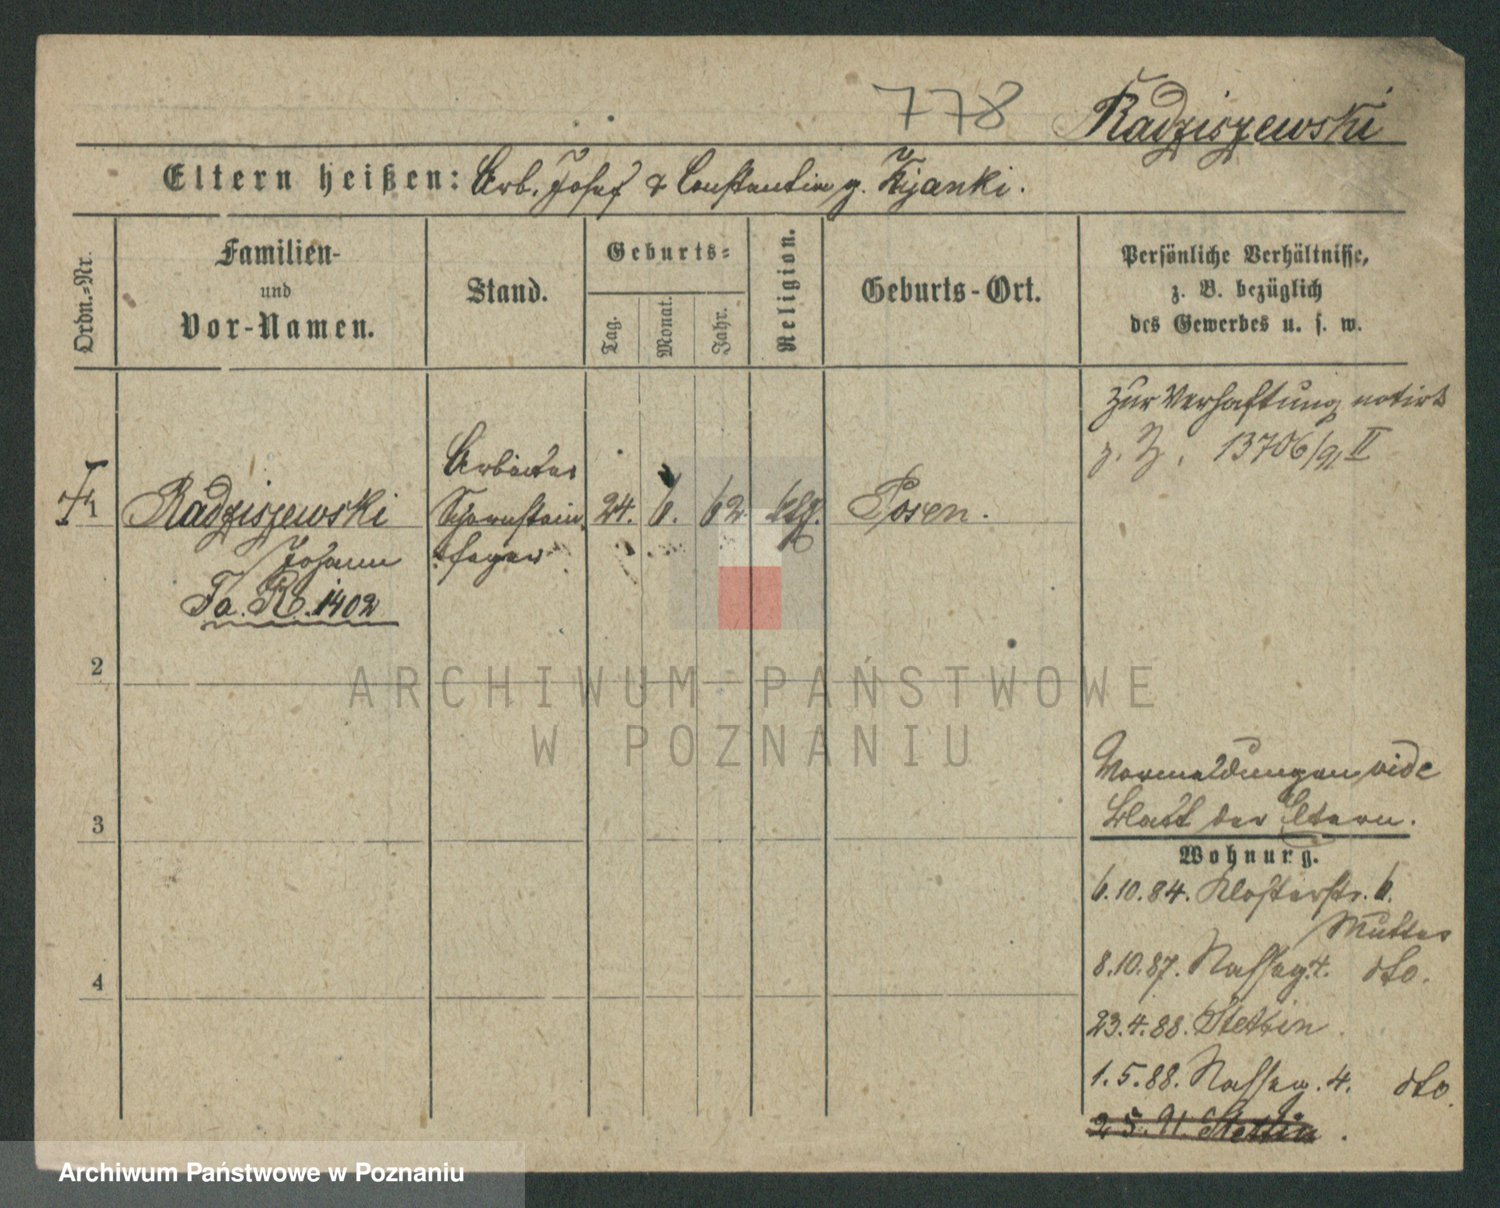 778 Radziszewski
Eltern heißen: Arb. Josef & Constantia g. Kijanki.
Ordn.=Nr.
Familien-
und
Vor-Namen.
Stand.
Geburts=
Tag.
Monat.
Jahr.
Religion.
Geburts-Ort.
Persönliche Verhältnisse,
z. B. bezüglich
des Gewerbes u. s. w.
zur Verhaftung notirt
z. Z. 13706/91 II
1 Radziszewski
Johann
Fa. R. 1402
Arbeiter
Schornstein
feger
24. 6. 62. ktg. Posen.
2
3
4
Vormeldungen vide
Blatt der Eltern.
Wohnung.
6.10.84. Klosterstr. 6.
Mutter
8.10.87. Nasseg. 4. dto.
23.4.88. Stettin.
1.5.88. Nasseg. 4. dto.
2 5. 91. Stettin.
ARCHIWUM PAŃSTWOWE
W POZNANIU
Archiwum Państwowe w Poznaniu